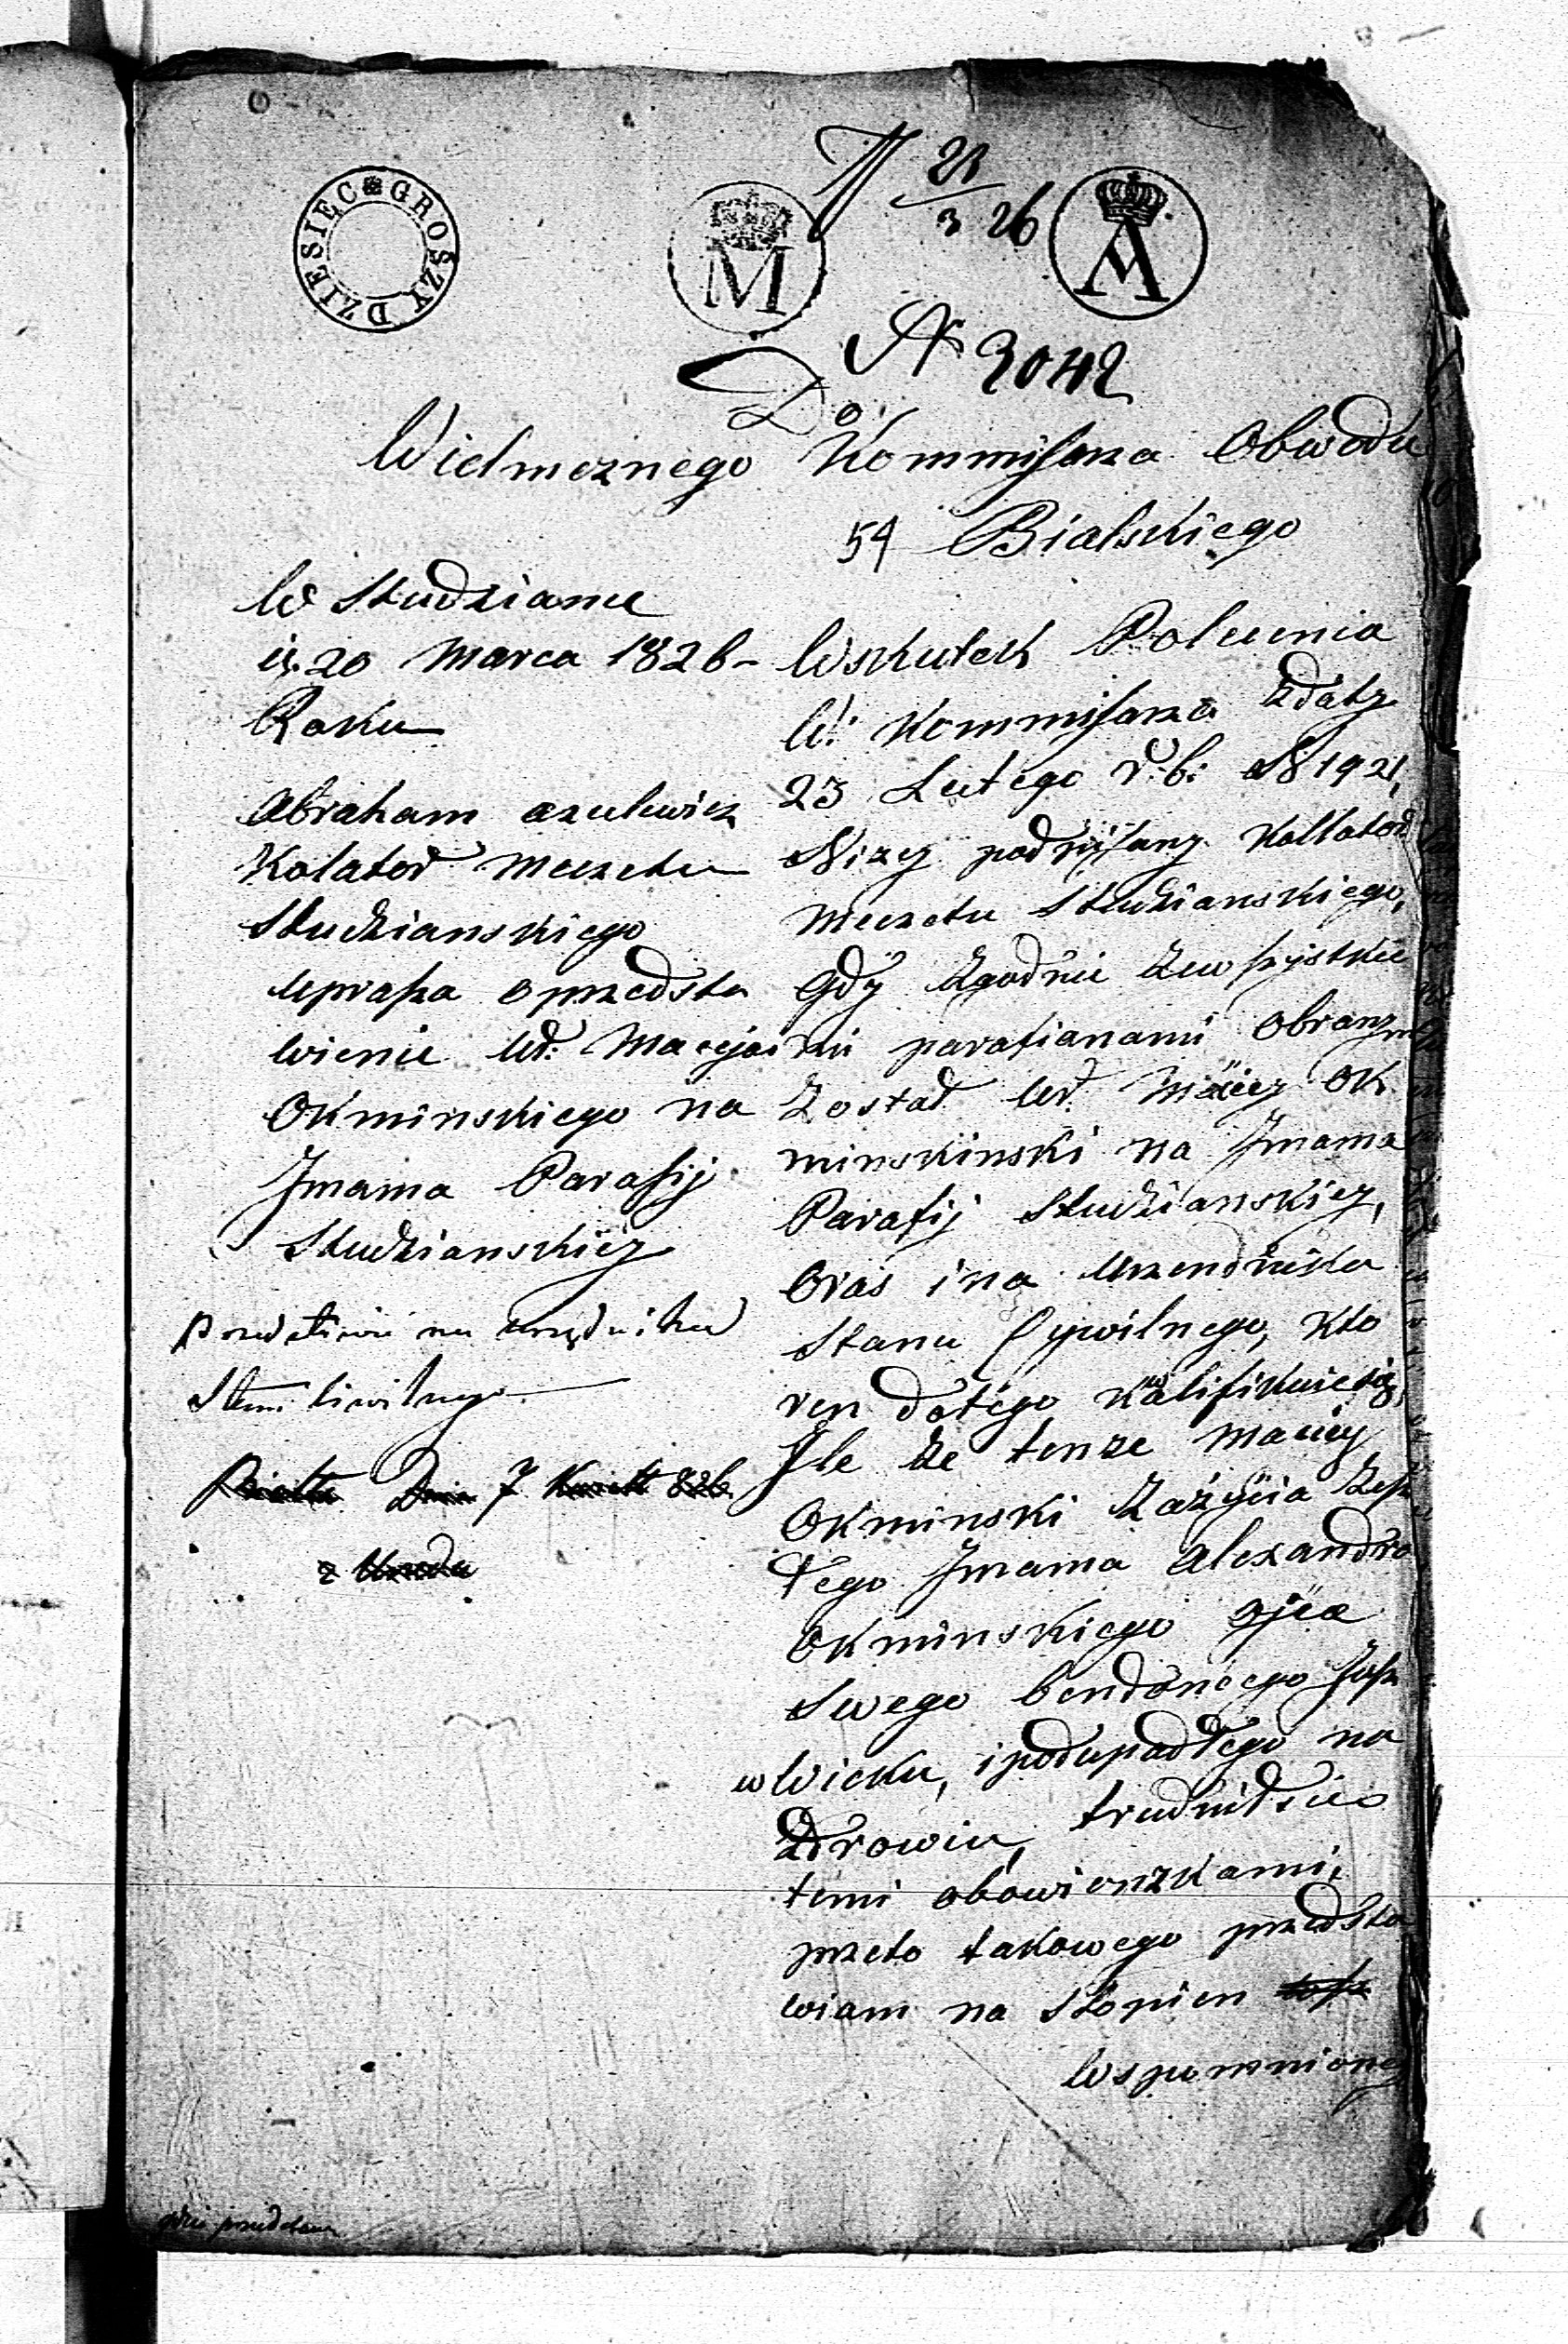 DZIESIĘC GROSZY
N 21/3 26
M
A
N 3042
Do
Wielmoznego Kommissarza Obwodu
54 Bialskiego
W Studziance
d. 20 Marca 1826
Roku
Abraham Azulewicz
Kolator Meczetu
Studzianskiego
uprasza o przedsta
wienie Ur: Macieja
Okminskiego na
Jmama Parafij
Studzianskiey
na urzędnika
Stanu Ciwilnego
Dnia 7 Kwiet 826
z Urzedu
Wskutek Polecenia
W: Kommissarza zdaty
23 Lutego r: b: N 1921,
Nizey podpisany Kollator
Meczetu Studzianskiego,
Gdy zgodnie zewszystkie
mi parafianami Obranym
został Ur. Maciey Ok
minskinski na Jmama
Parafij Studzianskiey,
Oras i na Urzendnika
Stanu Cywilnego, kto
ren dotego kwalifikuiesię,
Jle że tenze Maciey
Okminski zażycia zesz
łego Jmama Alexandra
Okminskiego ojca
Swego bendoncego Jusz
w Wieku, i podupadłego na
Zdrowiu, trudnił sie
temi obowionzkami,
przeto takowego przedsta
wiam na Stopien
Wspomnioney